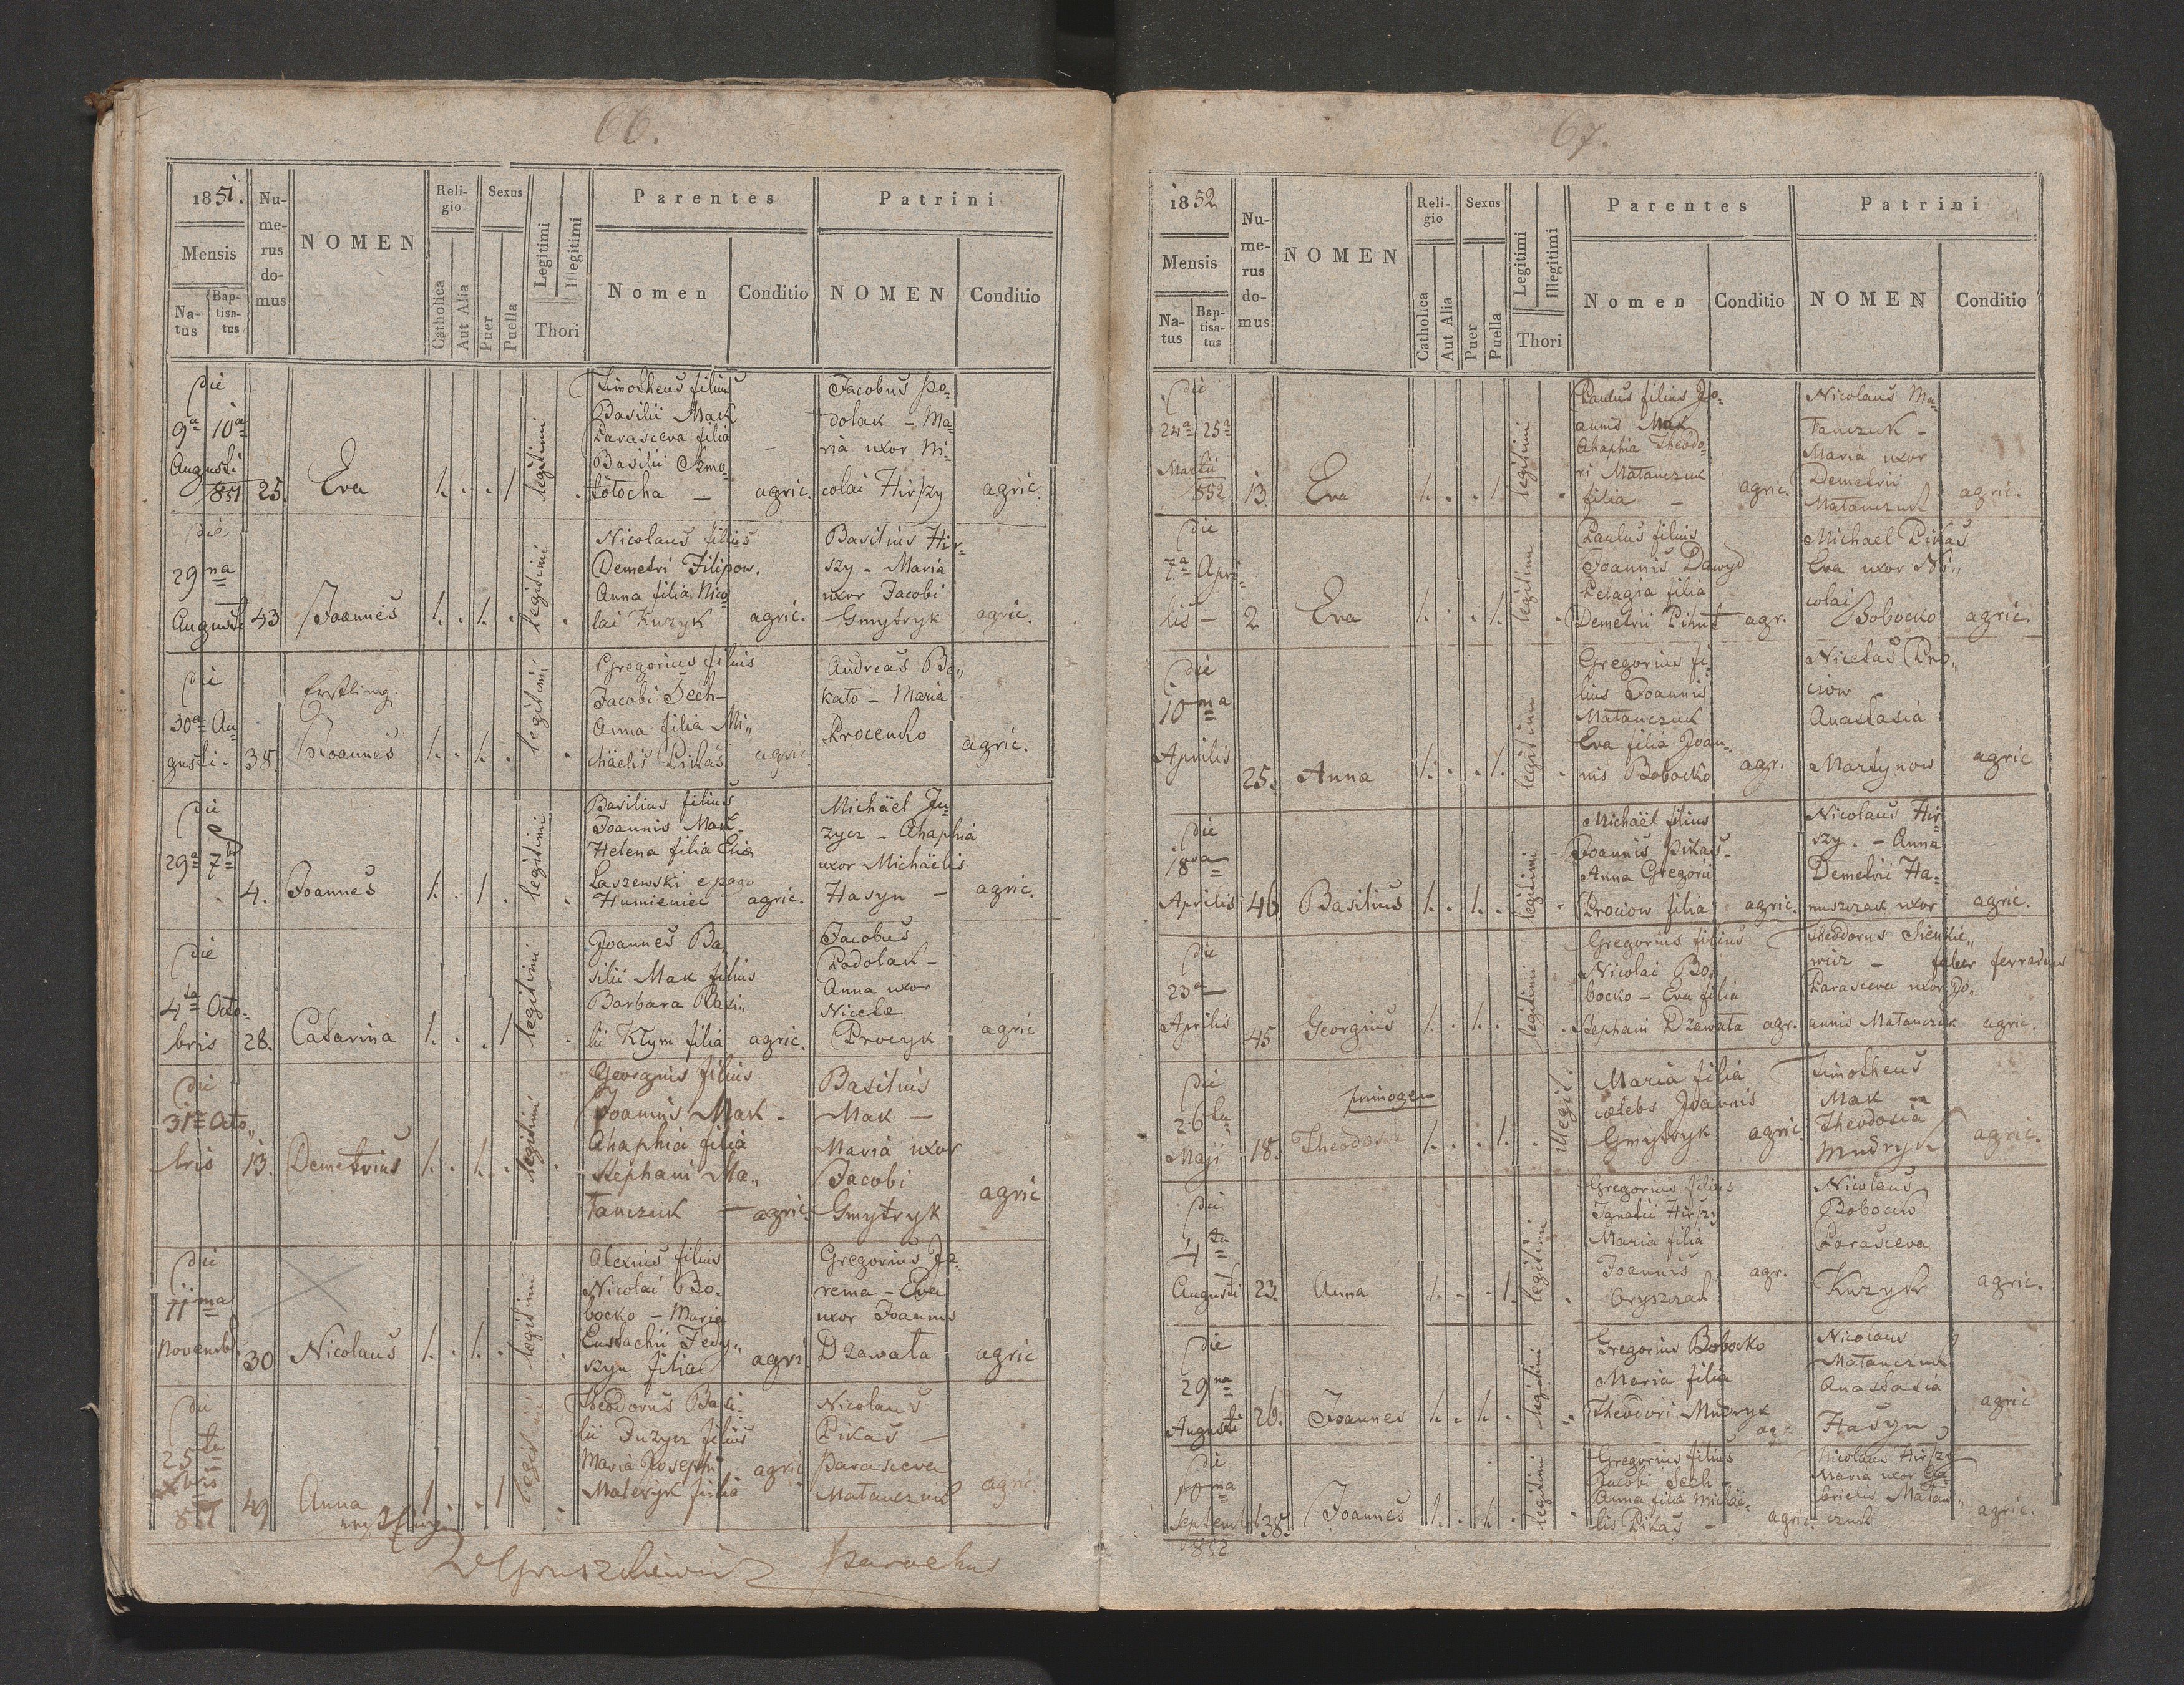 66.
1851.
Mensis
Na-
tus
Bap-
tisa-
tus
Nu-
me-
rus
do-
mus
NOMEN
Reli-
gio
Catholica
Aut Alia
Sexus
Puer
Puella
Legitimi
Illegitimi
Thori
Parentes
Nomen
Conditio
Patrini
NOMEN
Conditio
Die
9a 10a
Augusti
851
25.
Eva
1. . . 1
legitimi
Timotheus filius
Basilii Mak
Parasceva filia
Basilii
totocha —
agric.
Jacobus Po-
dolak - Ma-
ria uxor Ni-
colai Hirszy
agric.
Die
29na
Augusti
43
Joannes
1. . 1. .
legitimi
Nicolaus filius
Demetri Filipow.
Anna filia Nico
lai Kuzyk
agric.
Basilius Hir-
szy - Maria
uxor Jacobi
Gmytryk
agric.
Die
30a Au
gusti.
38.
Erstling.
Joannes
1. . 1. .
legitimi
Gregorius filius
Jacobi Sech -
Anna filia Mi„
chäelis Pikas
agric.
Andreas Bo„
kato - Maria
Procenko
agric.
Die
29a 7b
4.
Joannes
1. . 1 .
legitimi
Basilius filius
Joannis Mak -
Helena filia Eliæ
Laszewski e pago
Humieniec
agric.
Michäel Ju-
zycz - Ahaphia
uxor Michäelis
Hasyn —
agric.
Die
4ta Octo-
bris
28.
Catarina
1. . . 1
legitimi
Joannes Ba
silii Mak filius
Barbara Basi„
lii Klym filia
agric.
Jacobus
Podolak -
Anna uxor
Nicetæ
Procyk
agric
Die
31a Octo„
bris
13.
Demetrius
1. . 1. .
legitimi
Georgius filius
Joannis Mak -
Ahaphia filia
Stephani Ma„
tanczuk —
agric.
Basilius
Mak —
Maria uxor
Jacobi
Gmytryk
agric
Die
11ma
Novembr.
30
Nicolaus
1. . 1. .
legitimi
Alexius filius
Nicolai Bo-
bocko - Maria
Eustachii Fedy„
szyn filia
agri
Gregorius Ja-
rema - Eva
uxor Joannis
Dzawala
agric
Die
25ta
Xbris
851
49
Anna
1. . . 1
legitimi
Theodorus Basi-
lii Juzycz filius
Maria Josephi
Maleryk filia
agric
Nicolaus
Pikas —
Parasceva
Matanczuk
agric.
Parochus
67.
1852
Mensis
Na-
tus
Bap-
tisa-
tus
Nu-
me-
rus
do-
mus
NOMEN
Reli-
gio
Catholica
Aut Alia
Sexus
Puer
Puella
Legitimi
Illegitimi
Thori
Parentes
Nomen
Conditio
Patrini
NOMEN
Conditio
Die
24a 25a
Martii
852
13.
Eva
1. . . 1.
legitimi
Paulus filius Jo-
annis Mak
Ahaphia Theodo-
ri Matanczuk
filia —
agric.
Nicolaus Ma-
tanczuk -
Maria uxor
Demetrii
Matanczuk
agric.
Die
7a Apri-
lis —
2
Eva
1. . . 1.
legitimi
Paulus filius
Joannis Dawyd
Pelagia filia
Demetrii Pihut
agr.
Michael Pikas
Eva uxor Ni„
colai
Bobocko
agric.
Die
10ma
Aprilis
25.
Anna
1. . . 1.
legitimi
Gregorius fi-
lius Joannis
Matanczuk
Eva filia Joan-
nis Bobocko
agr.
Nicetas Pro„
ciow -
Anastasia
Martynow
agric
Die
18va
Aprilis
46
Basilius
1. . 1. .
legitimi
Michäel filius
Joannis Pikas -
Anna Gregorii
Prociow filia
agric.
Nicolaus Hir-
szy. - Anna
Demetrii Ha-
nuszczak uxor
agric.
Die
23a —
Aprilis
45
Georgius
1. . 1. .
legitimi
Gregorius filius
Nicolai Bo-
bocko - Eva filia
Stephani Dzawala
agr.
Theodorus Sienkie„
wicz — faber ferrarius
Parasceva uxor Jo„
annis Matanczuk
agric.
Die
26ta
Maji
18.
primogen
Theodosia
1. . . 1.
illegit.
Maria filia
cælebs Joannis
Gmytryk
agric.
Timotheus
Mak —
Theodosia
Mudryk
agric.
Die
4ta
Augusti
23.
Anna
1. . . 1.
legitimi
Gregorius filius
Ignatii Hirszy
Maria filia
Joannis
Oryszczak
agr.
Nicolaus
Bobocko
Parasceva
Kuzyk
agric.
Die
29na
Augusti
26.
Joannes
1. . 1. .
legitimi
Gregorius Bobocko
Maria filia
Theodori Mudryk
ag.
Nicolaus
Matanczuk
Anastasia
Hasyn
agric
Die
10ma
Septemb
852
38.
Joannes
1. . 1. .
legitimi
Gregorius filius
Jacobi Sech -
Anna filia Michäe-
lis Pikas -
agric.
Nicolaus Hirszy
Maria uxor Ga-
brielis Matan„
czuk
agric.